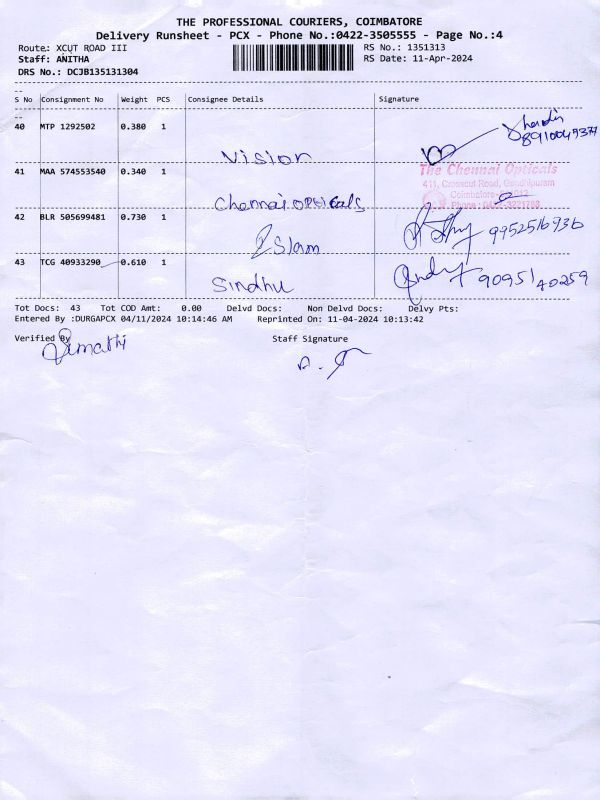 THE PROFESSIONAL COURIERS, COIMBATORE
Delivery Runsheet - PCX - Phone No.:0422-3505555 - Page No.:4
Route: XCUT ROAD III RS No.: 1351313
Staff: ANITHA RS Date: 11-Apr-2024
DRS No.: DCJB135131304
S No Consignment No Weight PCS Consignee Details Signature
40 MTP 1292502 0.380 1
Vision
41 MAA 574553540 0.340 1 The Chennai Opticals
411, Crosscut Road, Gandhipuram
Coimbatore
Chennai opticals
42 BLR 505699481 0.730 1
Islam 9952516936
43 TCG 40933290 0.610 1
Sindhu 9095140259
Tot Docs: 43 Tot COD Amt: 0.00 Delvd Docs: Non Delvd Docs: Delvy Pts:
Entered By :DURGAPCX 04/11/2024 10:14:46 AM Reprinted On: 11-04-2024 10:13:42
Verified By Staff Signature